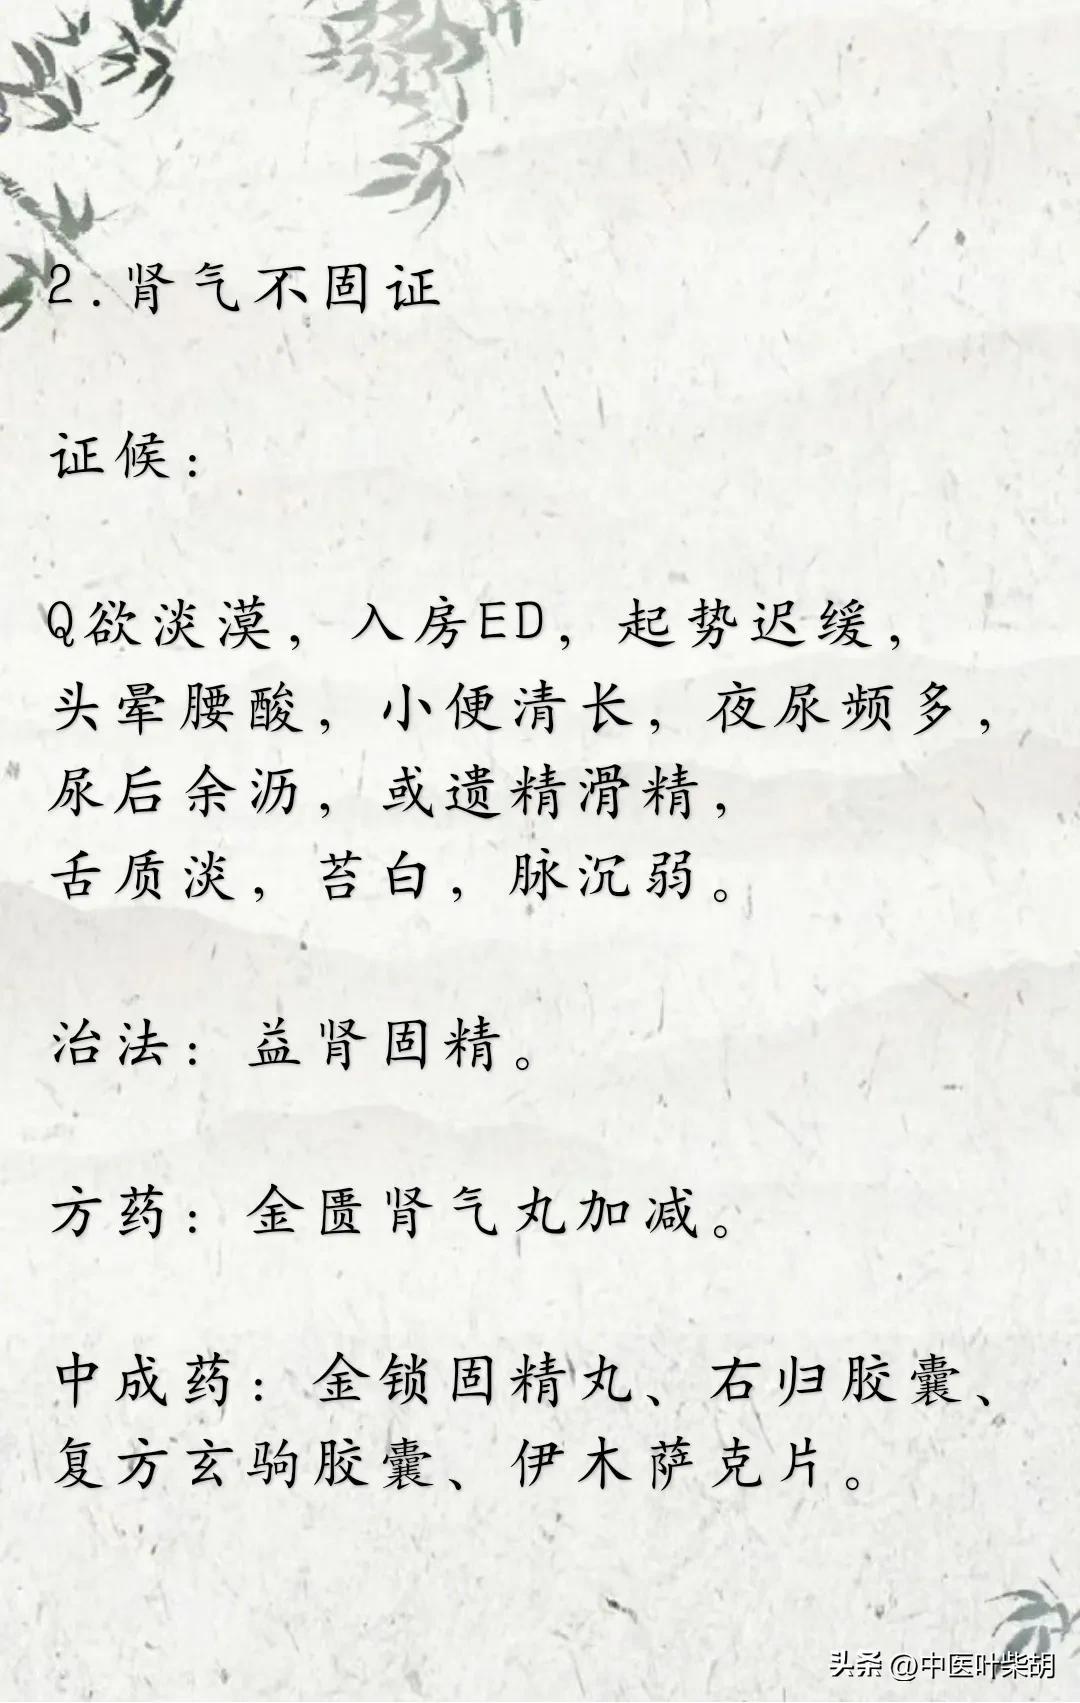 2.肾气不固证
证候：
Q欲淡漠，入房ED，起势迟缓，
头晕腰酸，小便清长，夜尿频多，
尿后余沥，或遗精滑精，
舌质淡，苔白，脉沉弱。
治法：益肾固精。
方药：金匮肾气丸加减。
中成药：金锁固精丸、右归胶囊、
复方玄驹胶囊、伊木萨克片。
头条 @中医叶柴胡